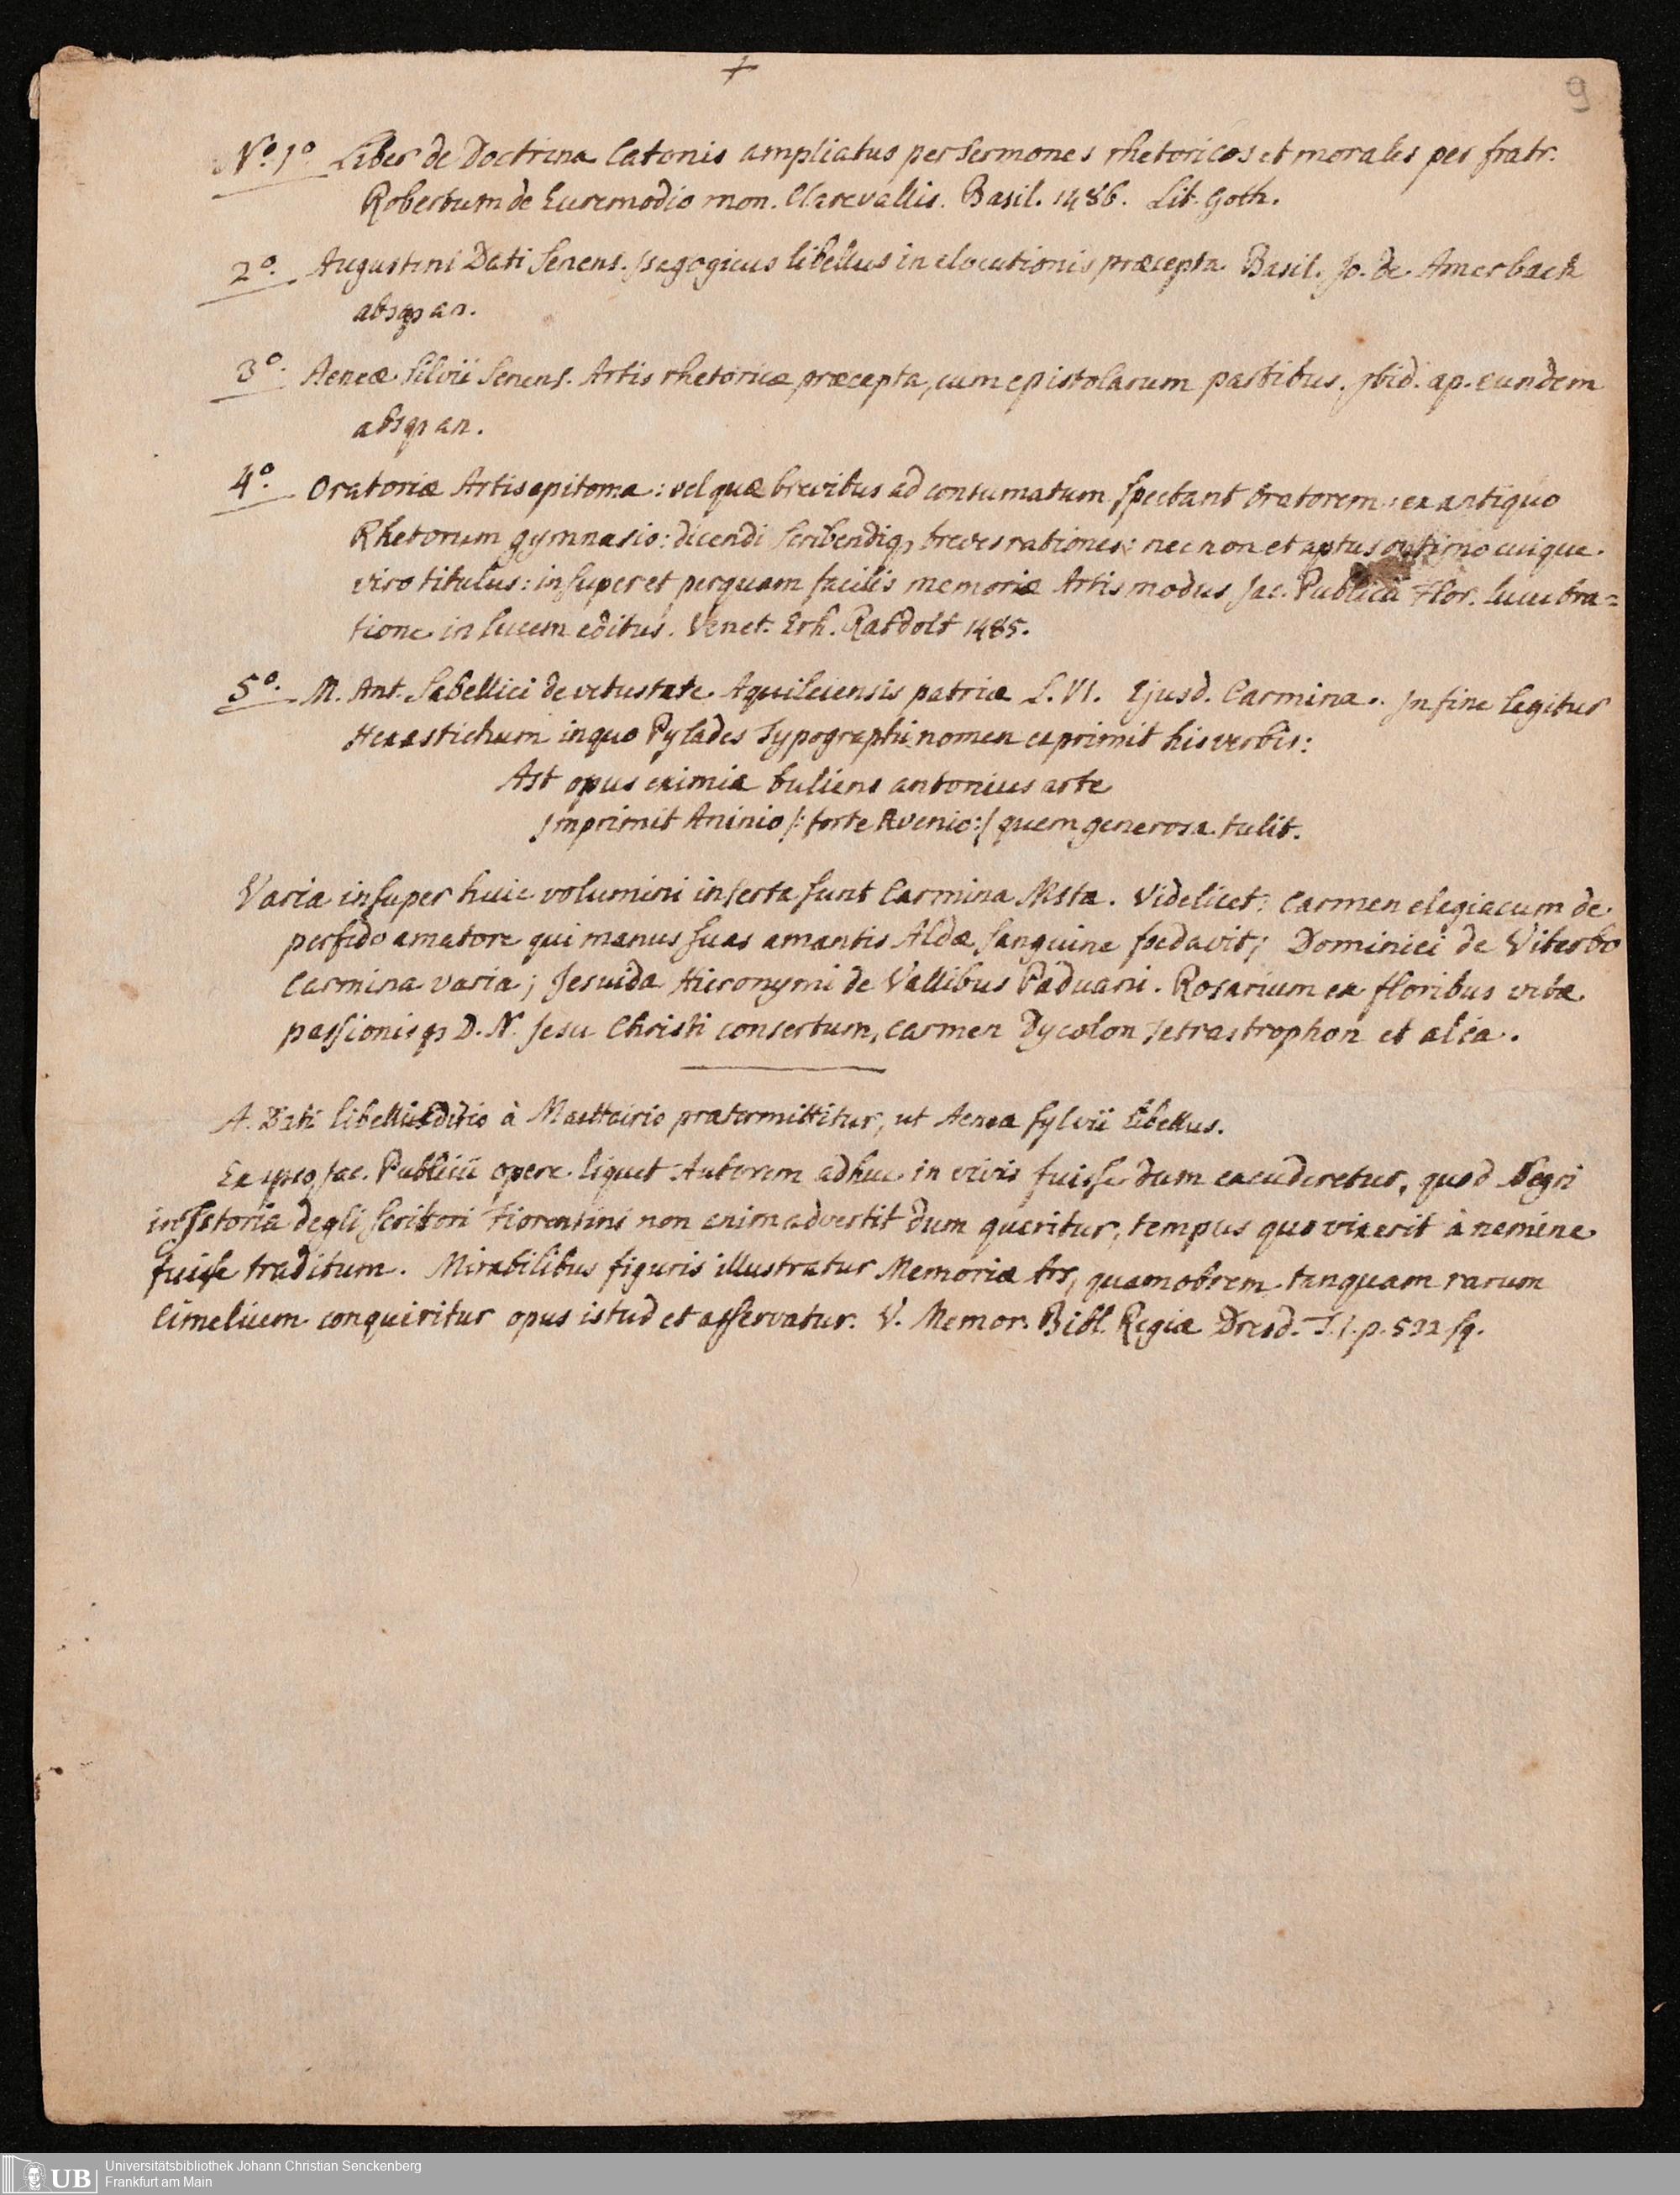 +
9
Nº. 1º Liber de Doctrina Catonis ampliatus per Sermones rhetoricos et morales per fratr.
Robertum de Euremodio mon. Clarevallis. Basil. 1486. Lit. Goth.
2º. Augustini Dati Senens. Isagogicus libellus in elocutionis præcepta Basil. Jo. de Amerbach
absq, an.
3º. Aeneæ Silvii Senens. Artis rhetoricæ præcepta, cum epistolarum partibus. Ibid. ap. eundem
absq, an.
4º. Oratoriæ Artis epitoma: vel quæ brevibus ad consumatum spectant oratorem: ex antiquo
Rhetorum gymnasio: dicendi scribendiq, breves rationes: nec non et aptus optimo cuique
viro titulus: insuper et perquam facilis memoriæ Artis modus Jac. Publicii Flor. lucubra=
tione in lucem editus. Venet. Erh. Ratdolt 1485.
5º. M. Ant. Sabellici de vetustate Aquileiensis patriæ L. VI. Ejusd. Carmina. In fine legitur
Hexastichum in quo Pylades Typographi nomen exprimit his verbis:
Ast opus eximia tuliens antonius arte
Imprimit Aninio /: forte Avenio :/ quem generosa tulit.
Varia insuper huic volumini inserta sunt Carmina Msta. Videlicet: Carmen elegiacum de
perfido amatore qui manus suas amantis Aldæ sanguine fœdavit; Dominici de Viterbo
Carmina varia; Jesuida Hieronymi de Vallibus Paduani. Rosarium ex floribus vitæ
passionisq, D. N. Jesu Christi consertum, carmen Dycolon Tetrastrophon et alia.
A. Dati libelli Editio à Maettairio prætermittitur, ut Aenea Sylvii libellus.
Ex ipso Jac. Publicii opere liquet Autorem adhuc in vivis fuisse dum excuderetur, quod Negri
in Istoria degli scrittori Fiorentini non animadvertit dum queritur, tempus quo vixerit à nemine
fuisse traditum. Mirabilibus figuris illustratur Memoriæ Ars, quamobrem tanquam rarum
Cimelium conquiritur opus istud et asservatur. V. Memor. Bibl. Regiæ Dresd. T. I. p. 522 sq.
UB
Universitätsbibliothek Johann Christian Senckenberg
Frankfurt am Main